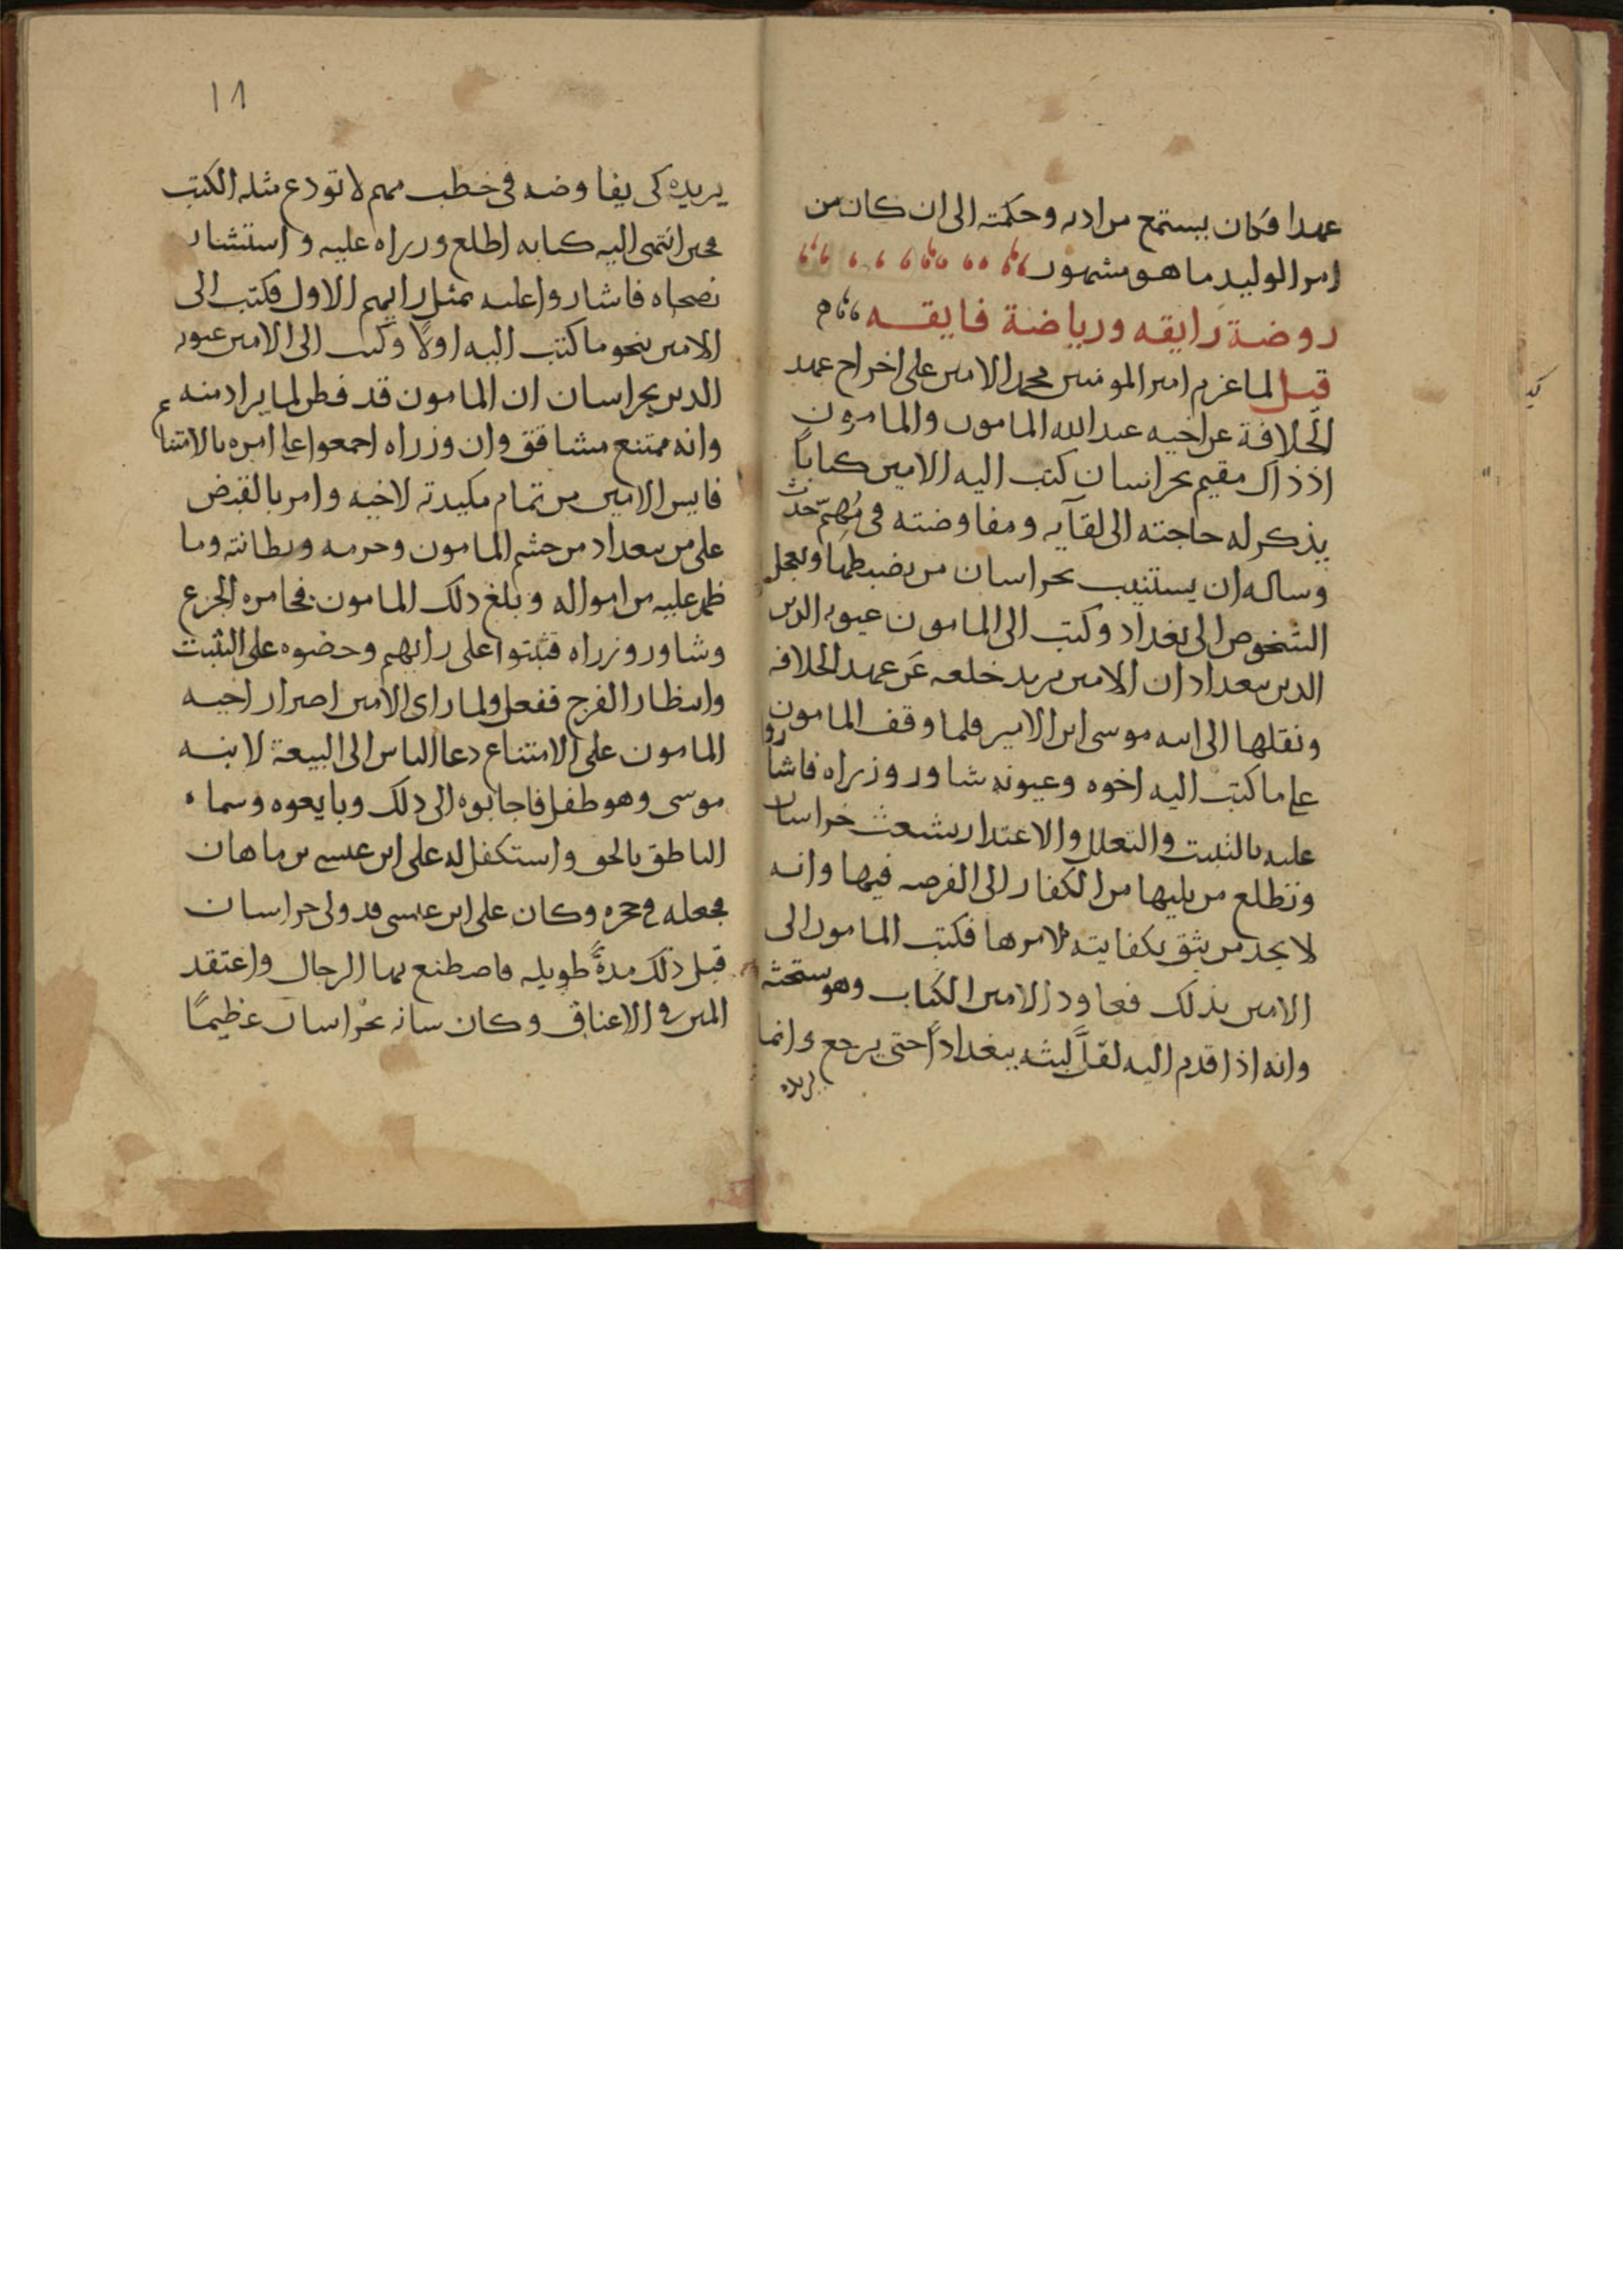 عهدا فكان يستمع من ادبه وحكمته الى ان كان من
امر الوليد ما هو مشهور
روضة رايقه ورياضة فايقه
قيل لما عزم امير المومنين محمد الامين على اخراج عهد
الخلافة عن اخيه عبد الله المامون والمامون
اذ ذاك مقيم بخراسان كتب اليه الامين كتاباً
يذكر له حاجته الى لقآيه ومفاوضته في مُهِمّ حدث
وساله ان يستنيب بخراسان من يضبطها ويعجل
الشخوص الى بغداد وكتب الى المامون عيونه الذين
الدين ببغداد ان الامين يريد خلعه عن عهد الخلافه
ونقلها الى ابنه موسى ابن الامير فلما وقف المامون
على ما كتب اليه اخوه وعيونه شاور وزراه فاشاروا
عليه بالتثبت والتعلل والاعتذار بشعث خراسان
وتطلع من يليها من الكفار الى الفرصه فيها وانه
لا يجد من يثق بكفايته لامرها فكتب المامون الى
الامين بذلك فعاود الامين الكتاب وهو يستحثه
وانه اذا قدم اليه لقلَّ لبثه ببغداد حتى يرجع وانما
يريده
١٨
يريده كى يفاوضه في خطب مهم لا تودع مثله الكتب
فحين انتهى اليه كتابه اطلع وزراه عليه واستشار
نصحاه فاشاروا عليه بمثل رايهم الاول فكتب الى
الامين بنحو ما كتب اليه اولاً وكتب الى الامين عيونه
الدين بخراسان ان المامون قد فطن لما يراد منه
وانه ممتنع مشاقق وان وزراه اجمعوا على امره بالامتناع
فايس الامين من تمام مكيدته لاخيه وامر بالقبض
على من ببغداد من حشم المامون وحرمه وبطانته وما
ظهر عليه من امواله وبلغ ذلك المامون فخامره الجزع
وشاور وزراه فثبتوا على رايهم وحضوه على التثبت
وانتظار الفرج ففعل ولما راى الامين اصرار اخيه
المامون على الامتناع دعا الناس الى البيعة لابنه
موسى وهو طفل فاجابوه الى ذلك وبايعوه وسماه
الناطق بالحق واستكفل له على ابن عيسى بن ماهان
فجعله في حجره وكان على ابن عيسى قد ولى خراسان
قبل ذلك مدةً طويله فاصطنع بها الرجال واعتقد
المنن في الاعناق وكان شانه بخراسان عظيمًا